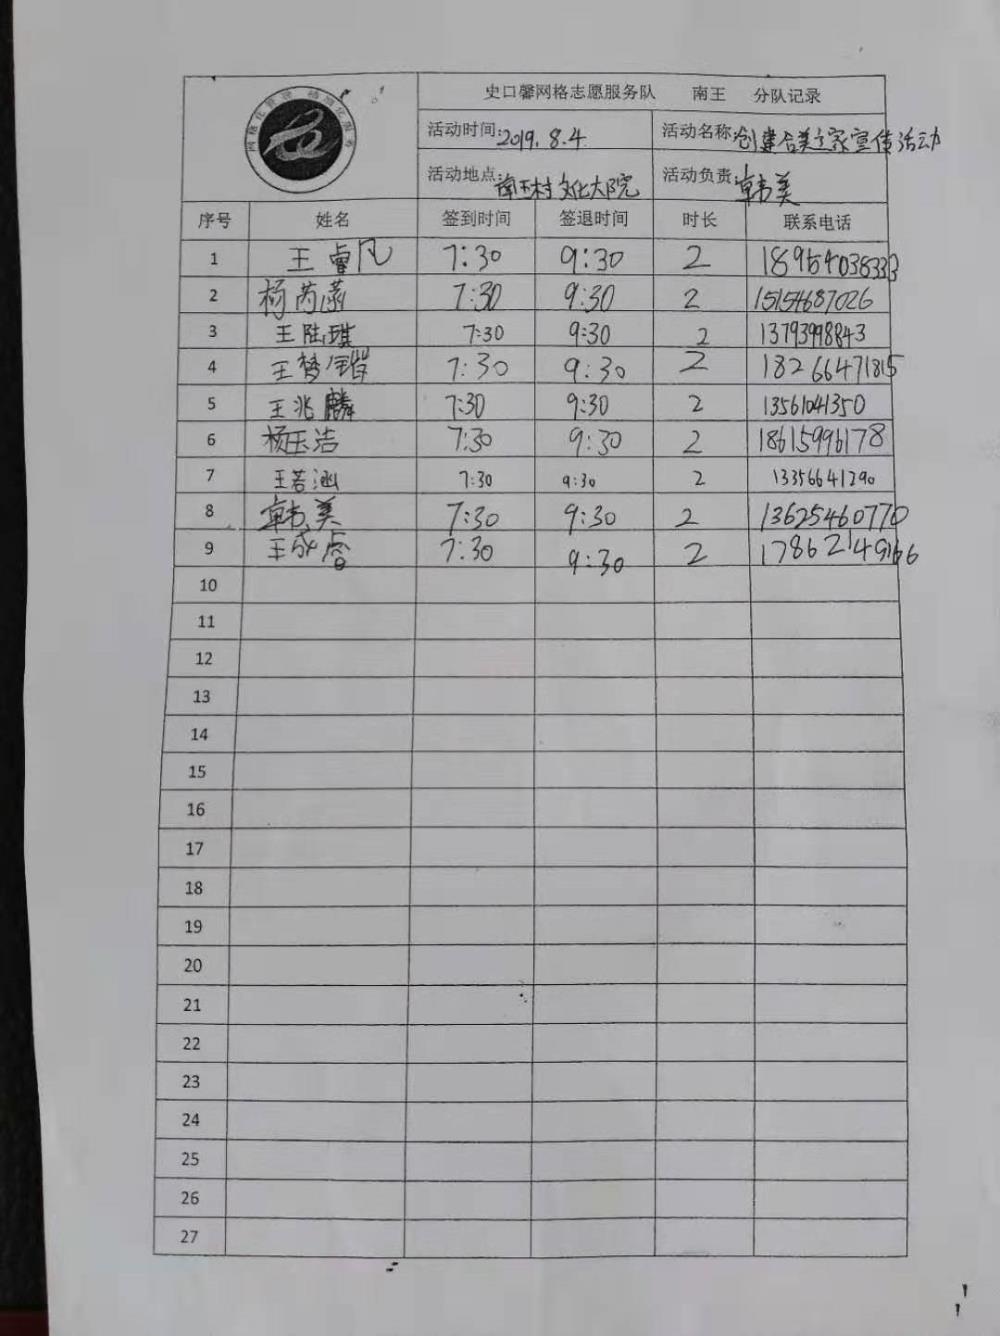 史口馨网格志愿服务队 南王 分队记录
活动时间:2019.8.4 活动名称:创建合美之家宣传活动
活动地点:南王村文化大院 活动负责:韩美
序号 姓名 签到时间 签退时间 时长 联系电话
1 王睿凡 7:30 9:30 2 18954038333
2 杨芮菡 7:30 9:30 2 15154687026
3 王陆琪 7:30 9:30 2 13793998843
4 王梦锴 7:30 9:30 2 18266471815
5 王兆麟 7:30 9:30 2 13561041350
6 杨玉洁 7:30 9:30 2 18615996178
7 王若涵 7:30 9:30 2 13356641290
8 韩美 7:30 9:30 2 13625460770
9 王成睿 7:30 9:30 2 17862149166
10
11
12
13
14
15
16
17
18
19
20
21
22
23
24
25
26
27